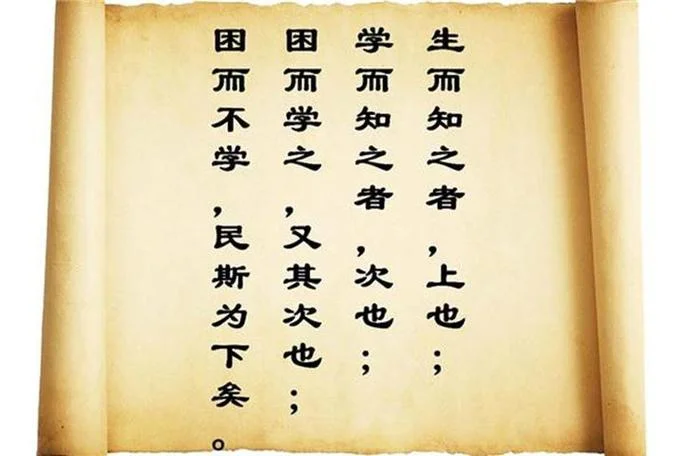 生而知之者,上也;
学而知之者,次也;
困而学之,又其次也;
困而不学,民斯为下矣。